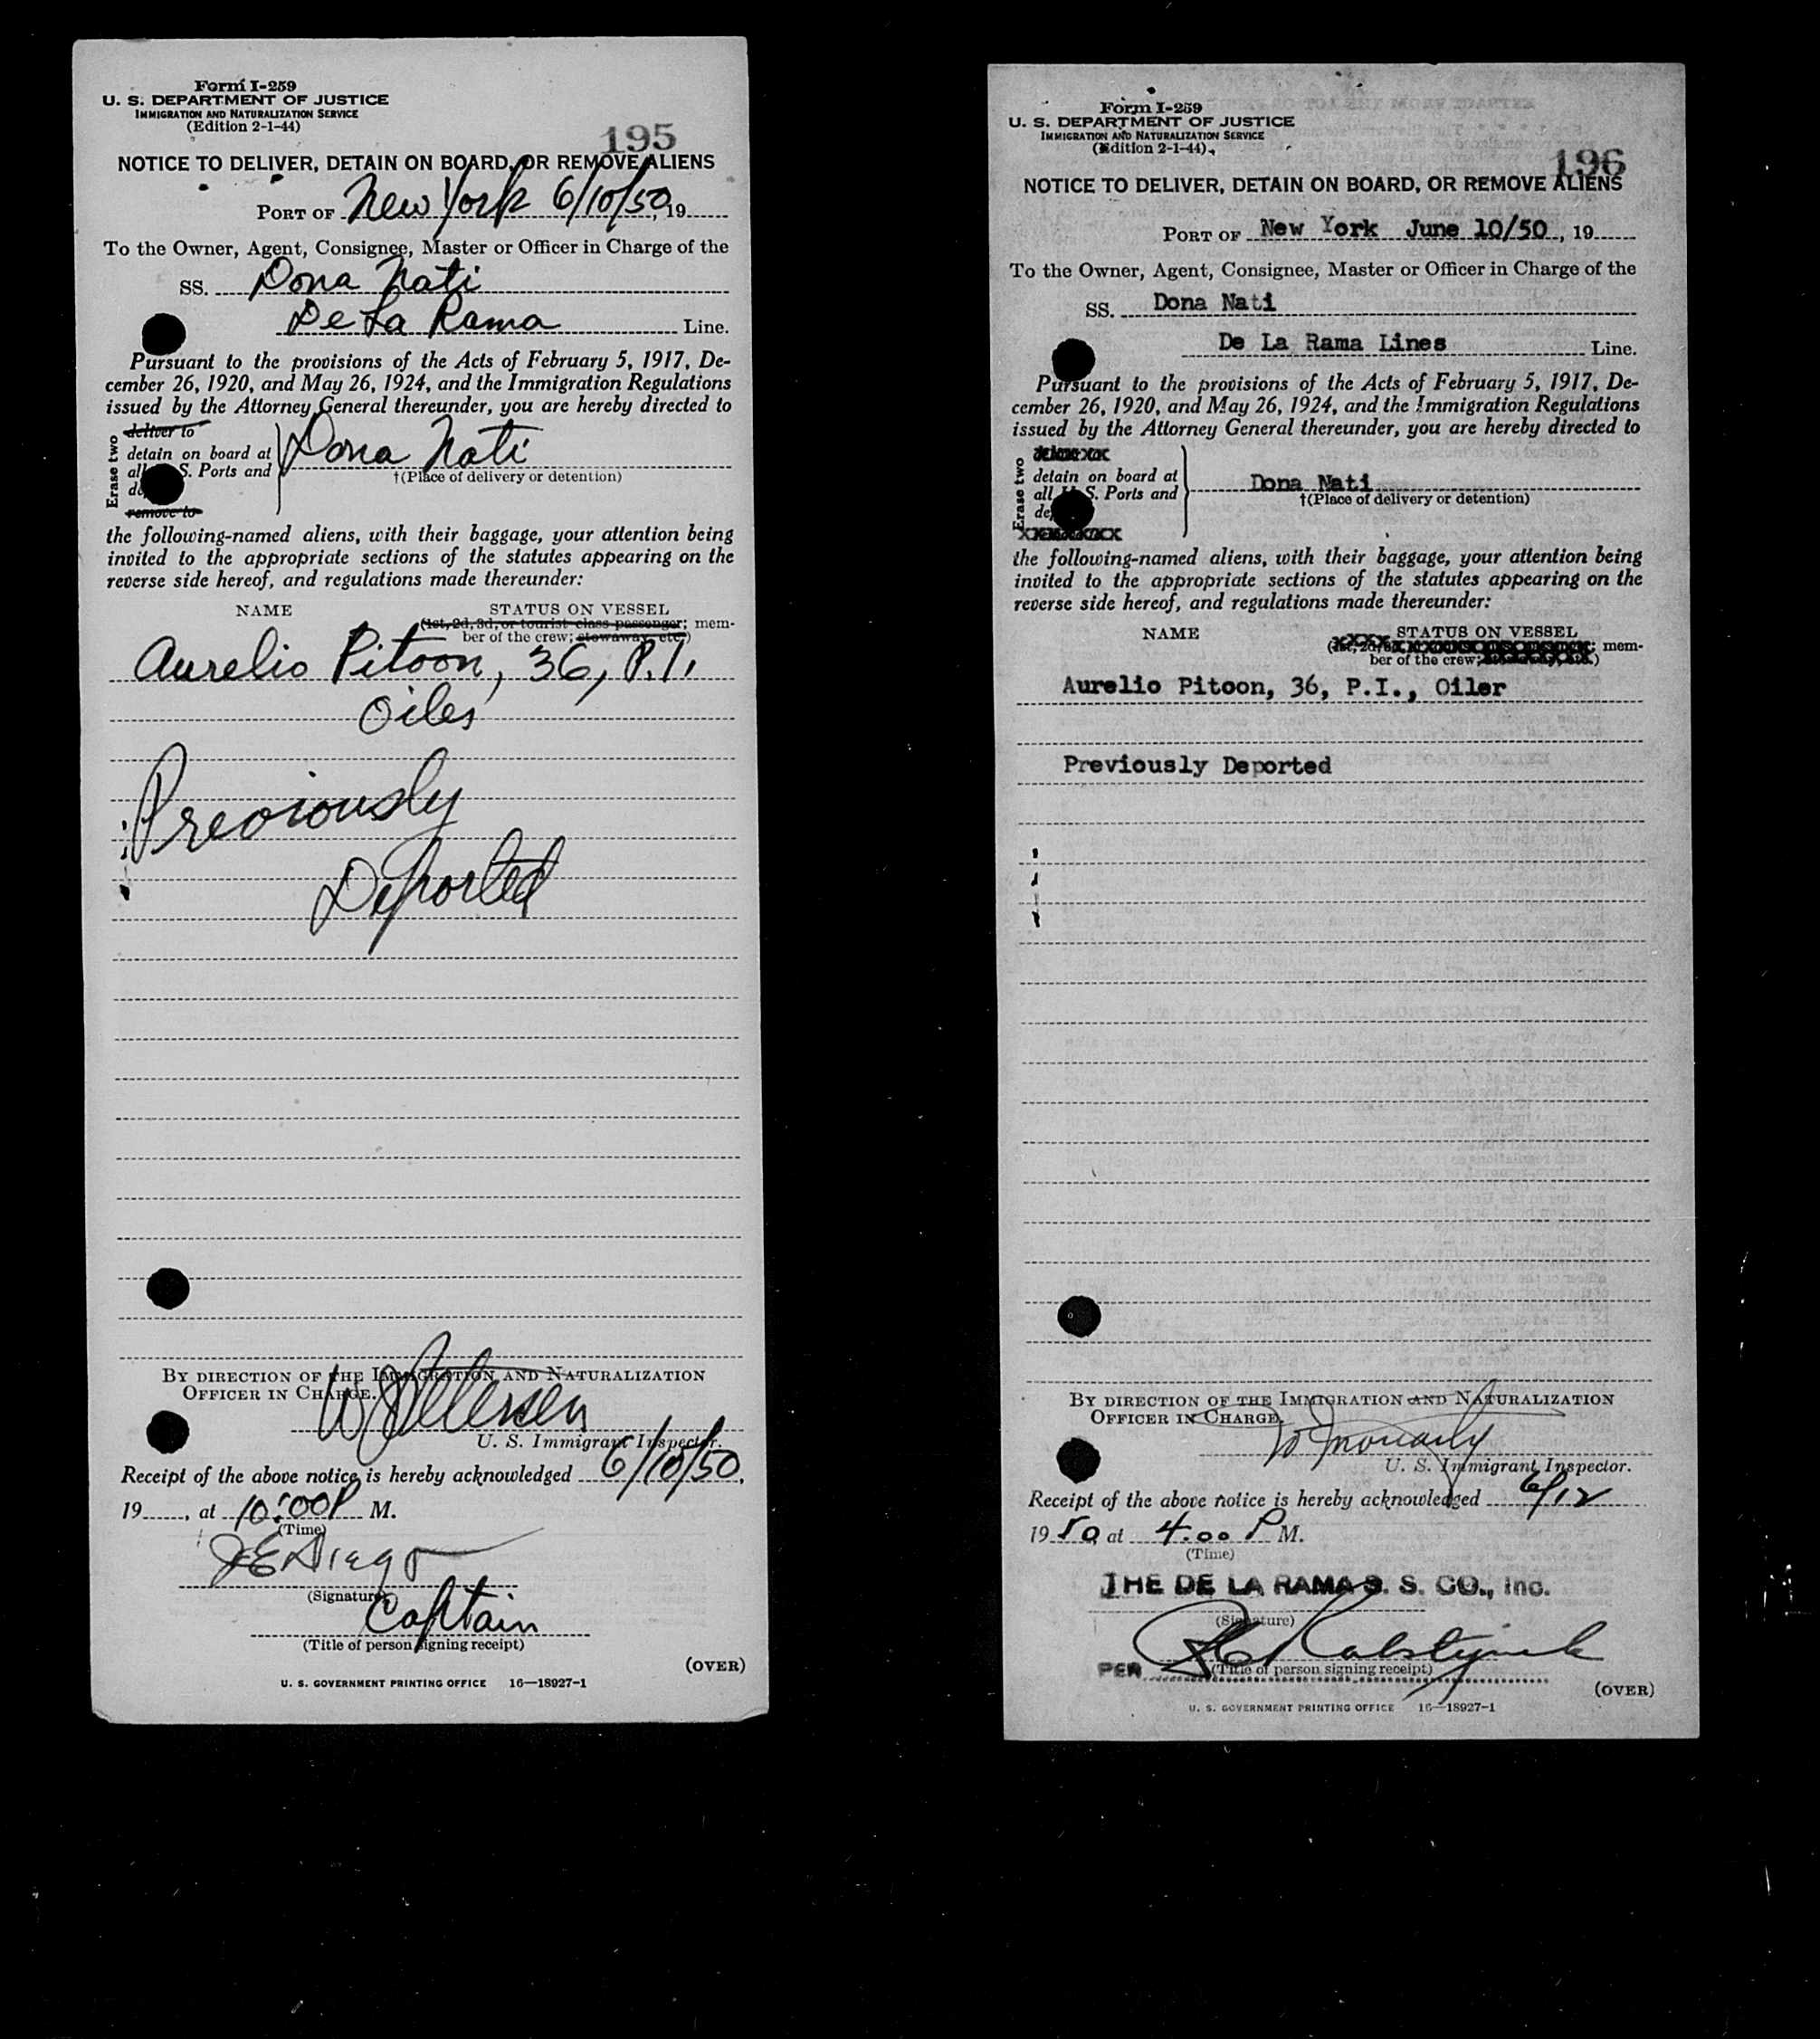 Form I-259
U. S. DEPARTMENT OF JUSTICE
IMMIGRATION AND NATURALIZATION SERVICE
(Edition 2-1-44)
195
NOTICE TO DELIVER, DETAIN ON BOARD, OR REMOVE ALIENS
PORT OF New York 6/10/50, 19
To the Owner, Agent, Consignee, Master or Officer in Charge of the
SS. Dona Nati
De La Rama Line.
Pursuant to the provisions of the Acts of February 5, 1917, De-
cember 26, 1920, and May 26, 1924, and the Immigration Regulations
issued by the Attorney General thereunder, you are hereby directed to
Erase two
deliver to
detain on board at
all S. Ports and
remove to
Dona Nati
†(Place of delivery or detention)
the following-named aliens, with their baggage, your attention being
invited to the appropriate sections of the statutes appearing on the
reverse side hereof, and regulations made thereunder:
NAME STATUS ON VESSEL
(1st, 2d, 3d, or tourist class passenger; mem-
ber of the crew; stowaway, etc.)
Aurelio Pitoon, 36, P.I.
Oiler
Previously
Deported
BY DIRECTION OF THE IMMIGRATION AND NATURALIZATION
OFFICER IN CHARGE.
U. S. Immigrant Inspector.
Receipt of the above notice is hereby acknowledged 6/10/50,
19, at 10:00 P M.
(Time)
J E Diego
(Signature)
Captain
(Title of person signing receipt)
(OVER)
U. S. GOVERNMENT PRINTING OFFICE 16—18927-1
Form I-259
U. S. DEPARTMENT OF JUSTICE
IMMIGRATION AND NATURALIZATION SERVICE
(Edition 2-1-44)
196
NOTICE TO DELIVER, DETAIN ON BOARD, OR REMOVE ALIENS
PORT OF New York June 10/50, 19
To the Owner, Agent, Consignee, Master or Officer in Charge of the
SS. Dona Nati
De La Rama Lines Line.
Pursuant to the provisions of the Acts of February 5, 1917, De-
cember 26, 1920, and May 26, 1924, and the Immigration Regulations
issued by the Attorney General thereunder, you are hereby directed to
Erase two
detain on board at
all S. Ports and
Dona Nati
†(Place of delivery or detention)
the following-named aliens, with their baggage, your attention being
invited to the appropriate sections of the statutes appearing on the
reverse side hereof, and regulations made thereunder:
NAME STATUS ON VESSEL
; mem-
ber of the crew;
Aurelio Pitoon, 36, P.I., Oiler
Previously Deported
BY DIRECTION OF THE IMMIGRATION AND NATURALIZATION
OFFICER IN CHARGE.
U. S. Immigrant Inspector.
Receipt of the above notice is hereby acknowledged 6/12
19 50, at 4:00 P M.
(Time)
THE DE LA RAMA S. S. CO., Inc.
(Signature)
PER
(Title of person signing receipt)
(OVER)
U. S. GOVERNMENT PRINTING OFFICE 16—18927-1